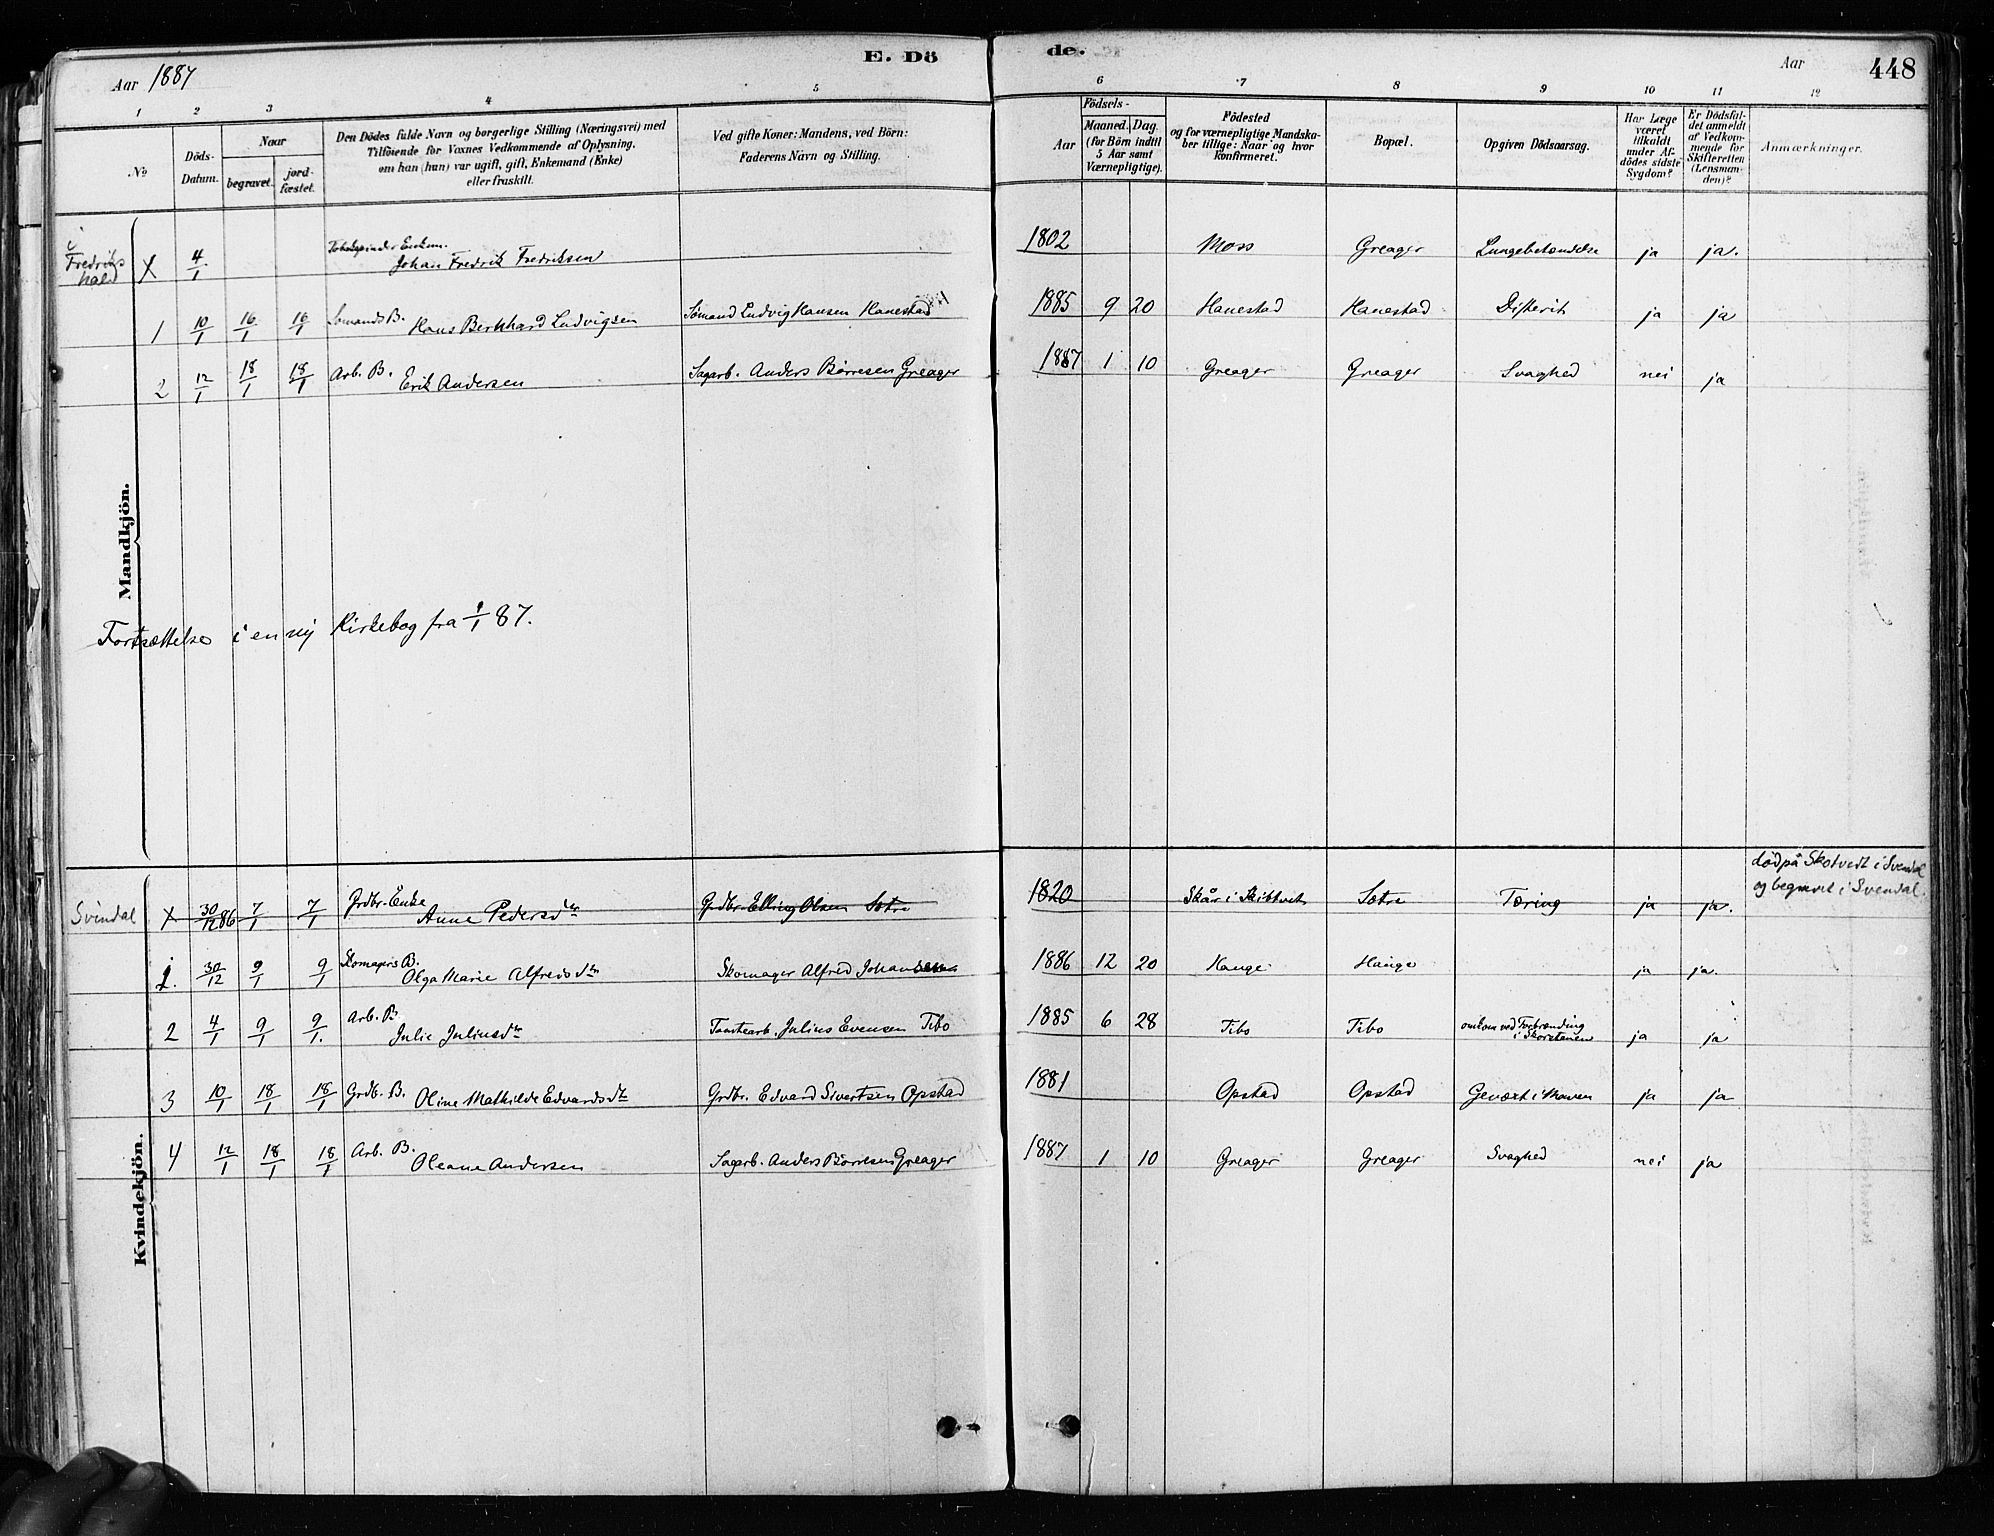 E. Dö de.
Aar 1887
Aar
448
1 2 3 4 5 6 7 8 9 10 11 12
No
Döds-
Datum.
Naar
begravet.
jord-
fæstet.
Den Dödes fulde Navn og borgerlige Stilling (Næringsvei) med
Tilföiende for Voxnes Vedkommende af Oplysning,
om han (hun) var ugift, gift, Enkemand (Enke)
eller fraskilt.
Ved gifte Koner: Mandens, ved Börn:
Faderens Navn og Stilling.
Aar
Födsels-
Maaned. Dag.
(for Börn indtil
5 Aar samt
Værnepligtige).
Födested
og for værnepligtige Mandska-
ber tillige: Naar og hvor
konfirmeret.
Bopæl.
Opgiven Dödsaarsag.
Har Læge
været
tilkaldt
under Af-
dödes sidste
Sygdom?
Er Dödsfal-
det anmeldt
af Vedkom-
mende for
Skifteretten
(Lensman-
den)?
Anmærkninger.
Mandkjön.
i Fredriks
hald X 4/1 Enkem. Johan Fredrik Fredriksen 1802 Moss Greager Lungebetændelse ja ja.
1 10/1 16/1 16/1 Sömands B. Hans Bernhard Ludvigsen Sömand Ludvig Hansen Hanestad 1885 9 20 Hanestad Hanestad Difterit ja ja
2 12/1 18/1 18/1 Arb. B. Erik Andersen Sagarb. Anders Börresen Greager 1887 1 10 Greager Greager Svaghed nei ja
Fortsættelse i en ny Kirkebog fra 1/1 87.
Kvindekjön.
Svindal X 30/12 86 7/1 7/1 Grdbr. Enke Anne Pedersdtr Grdbr. Elling Olsen Sætre 1820 Skår i Skibtvet Sætre Tæring ja ja. död på Skotvedt i Svendal
og begravet i Svendal.
1. 30/12 9/1 9/1 Skomagers B. Olga Marie Alfredsdtr Skomager Alfred Johansen 1886 12 20 Hauge Hauge ja ja.
2 4/1 9/1 9/1. Arb. B. Julie Juliusdtr Tomtearb. Julius Evensen Tibo 1885 6 28 Tibo Tibo omkom ved Forbrænding
i Skorstenen ja ja
3 10/1 18/1 18/1 Grdb. B. Oline Mathilde Edvardsdtr Grdbr. Edvard Sivertsen Opstad 1881 Opstad Opstad Gevæxt i Maven ja ja
4 12/1 18/1 18/1 Arb. B. Oleane Andersen Sagarb. Anders Börresen Greager 1887 1 10 Greager Greager Svaghed nei ja